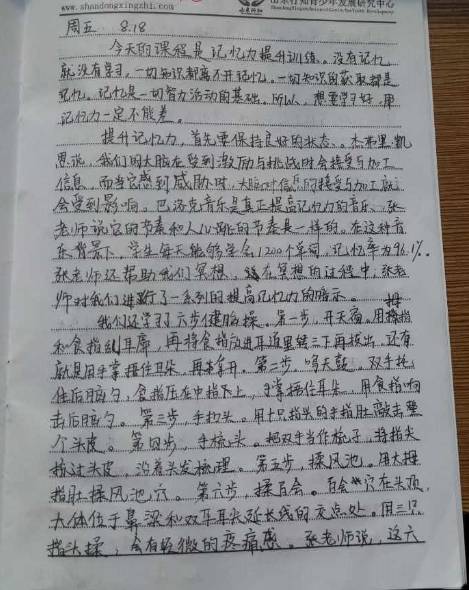 www.shandongxingzhi.com 山东行知 山东行知青少年发展研究中心
周五 8.18
今天的课程是记忆力提升训练。没有记忆
就没有学习,一切知识都离不开记忆。一切知识的获取都是
记忆。记忆是一切智力活动的基础。所以,想要学习好,那
记忆力一定不能差。
提升记忆力,首先要保持良好的状态。杰弗里·凯
恩说,我们的大脑在受到激励与挑战时会接受与加工
信息,而当它感到威胁时,大脑对信息的接受与加工就
会受到影响。巴洛克音乐是真正提高记忆力的音乐。张
老师说它的节奏和人心跳的节奏是一样的。在这种音
乐背景下,学生每天能够学会1200个单词,记忆率为96.1%。
张老师还帮助我们冥想,在冥想的过程中,张老
师对我们进行了一系列的提高记忆力的暗示。
我们还学习了六步健脑操。第一步,开天窗。用拇指
和食指刮耳廓,再将食指放进耳道里转三下再拔出,还有
就是用手掌捂住耳朵,再拿开。第二步,鸣天鼓。双手托
住后脑勺,食指压在中指下上,手掌捂住耳朵,用食指响
击后脑勺。第三步,手扣头。用十只指头的手指肚敲击整
个头皮。第四步,手梳头。把双手当作梳子,将指尖
接过头皮,沿着头发梳理。第五步,揉风池。用大拇
指肚揉风池穴。第六步,揉百会。百会穴在头顶,
大体位于鼻梁和双耳耳尖延长线的交点处。用三只
指头揉,会有轻微的疼痛感。张老师说,这六